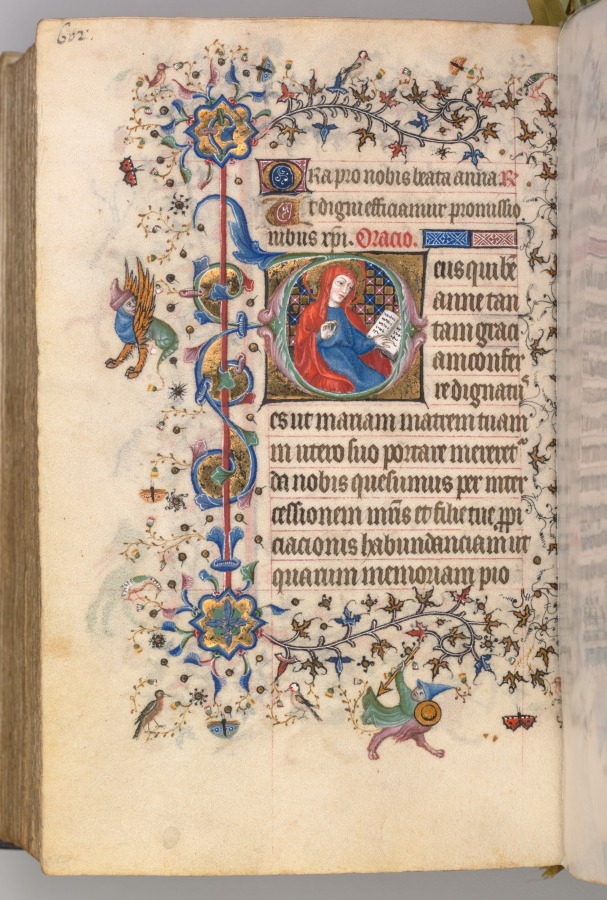 602.
Ora pro nobis beata anna. R
Et digni efficiamur promissio
nibus xpi. Oracio.
Deus qui be
anne tan
tam graci
am confer
re dignatus
es ut mariam matrem tuam
in utero suo portare mereret
da nobis quesumus per inter
cessionem mris et filie tue ppi
ciacionis habundanciam ut
qua tum memoriam pio